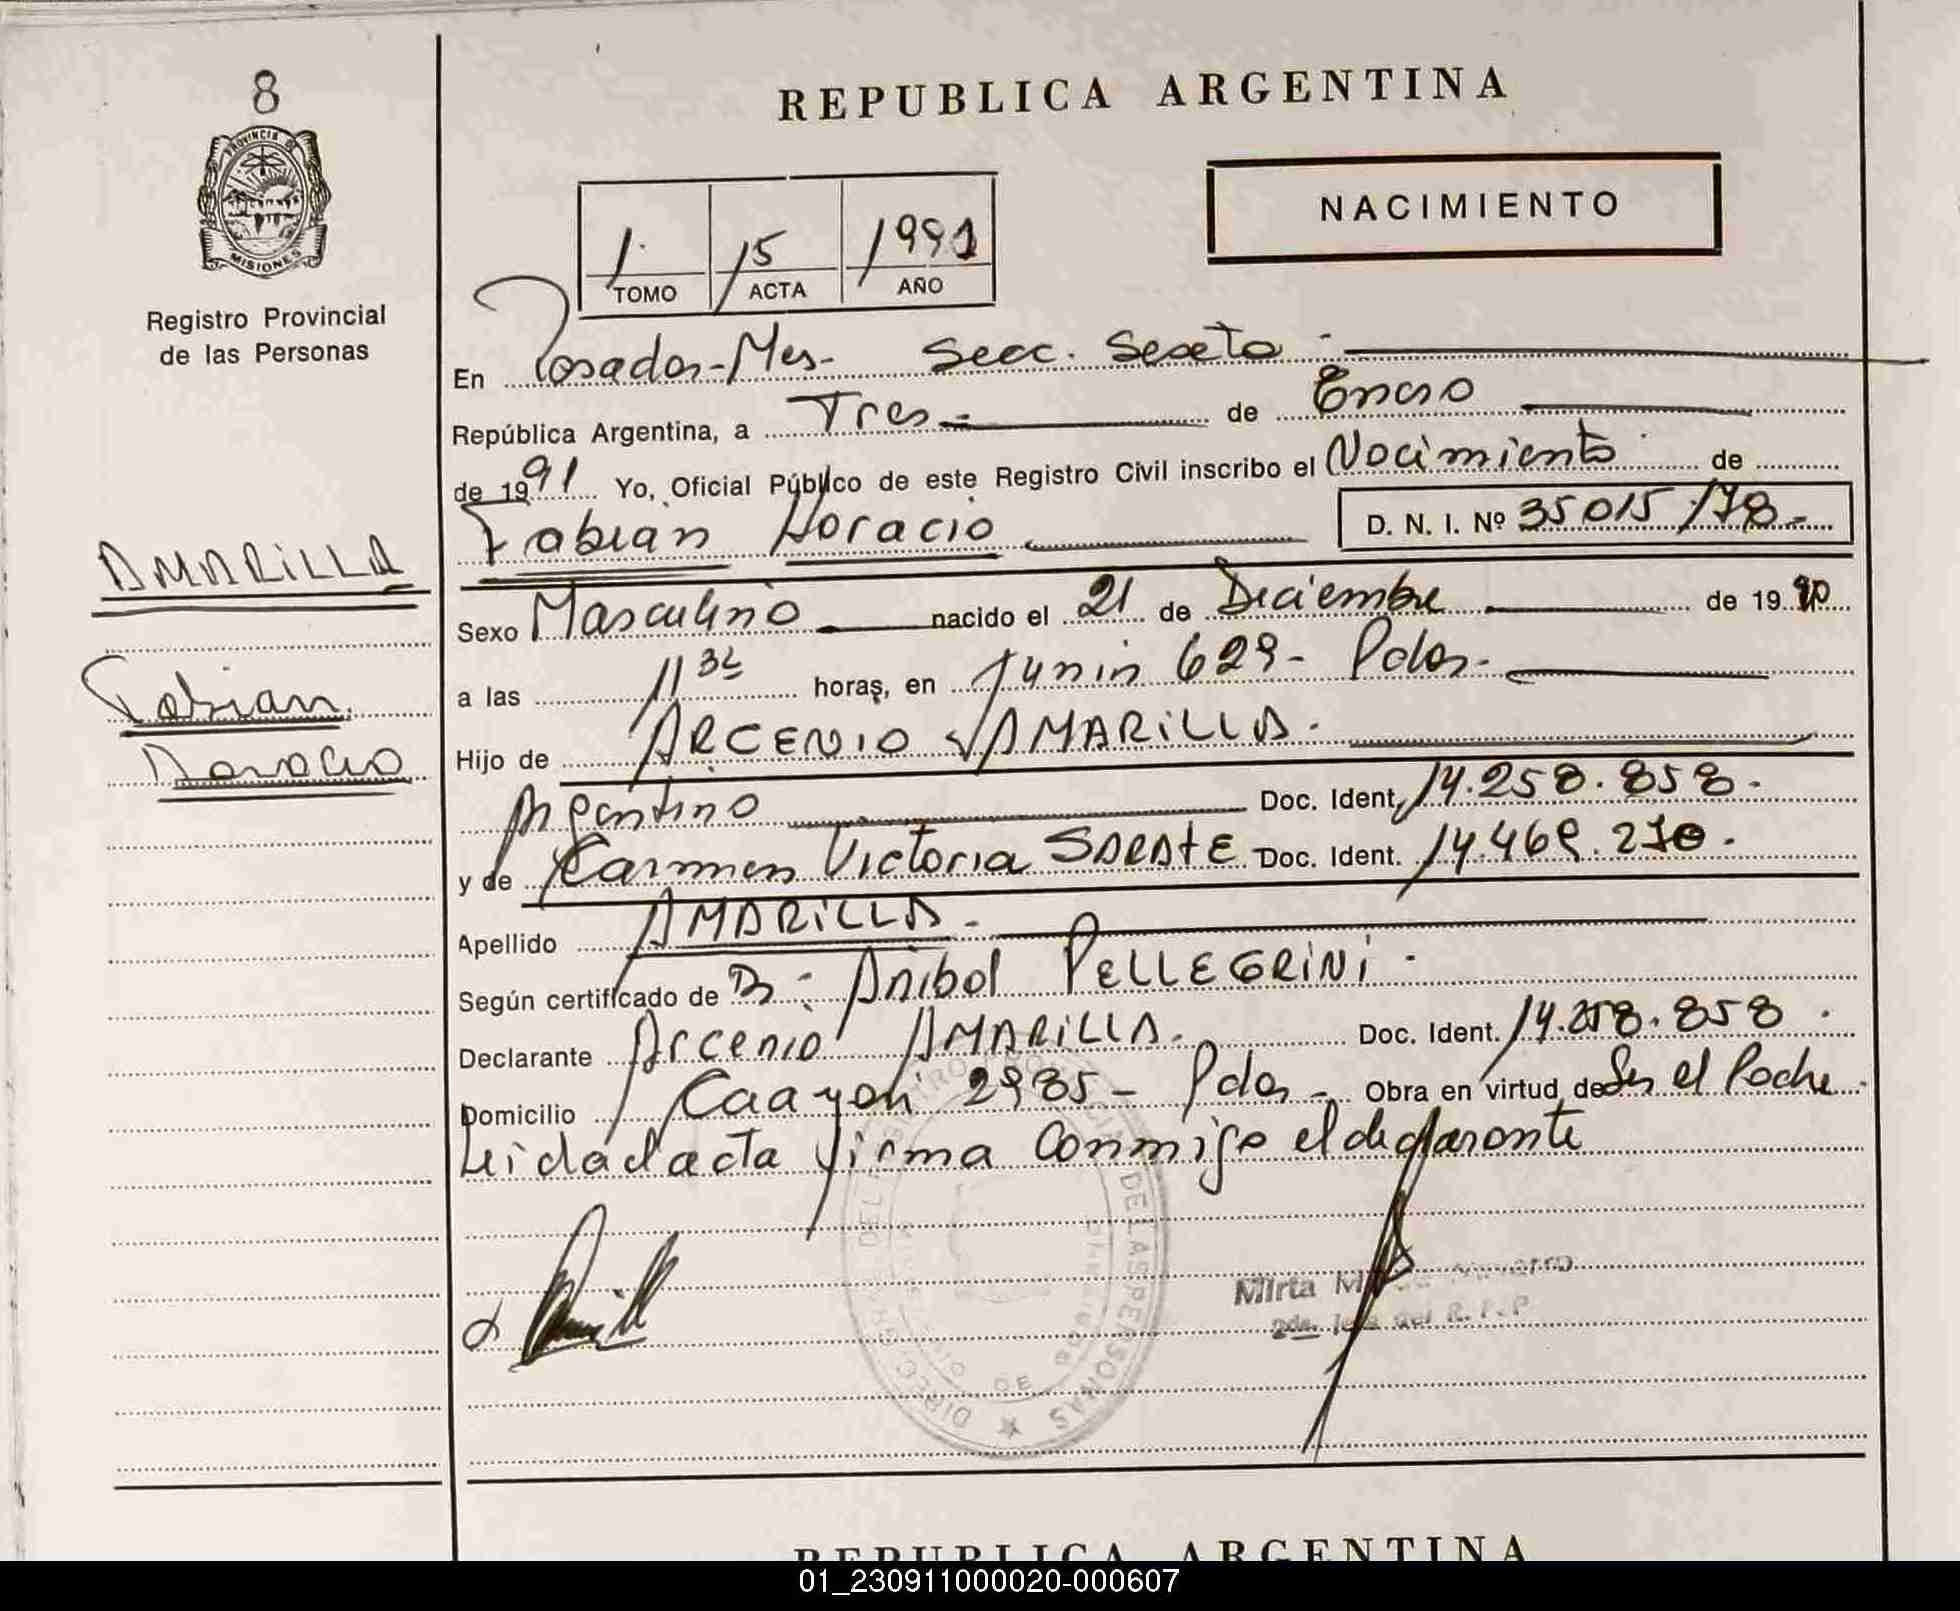 8
REPUBLICA ARGENTINA
PROVINCIA DE
MISIONES
Registro Provincial
de las Personas
NACIMIENTO
1. 15 1991
TOMO ACTA AÑO
En Posadas-Mes- Secc. Sexta -
República Argentina, a Tres - de Enero
de 1991 Yo, Oficial Público de este Registro Civil inscribo el Nacimiento de
Fabian Horacio D. N. I. Nº 35015178-
AMARILLA
Fabian
Horacio
Sexo Masculino nacido el 21 de Diciembre de 1990
a las 11 horas, en Junin 629- Pdas-
Hijo de ARCENIO AMARILLA.
Argentino Doc. Ident. 14.258.858.
y de Carmen Victoria Doc. Ident. 14.469.270.
Apellido AMARILLA.
Según certificado de Dr: Anibal PELLEGRINI.
Declarante Arcenio AMARILLA. Doc. Ident. 14.258.858.
Domicilio 2985- Pdas- Obra en virtud de Ser el Padre.
Leida el acta firma Conmigo el declarante
DIREC. GRAL. DEL REGISTRO PROVINCIAL DE LAS PERSONAS
Mirta Navarro
2da. Jefa del R.P.P
REPUBLICA ARGENTINA
01_230911000020-000607